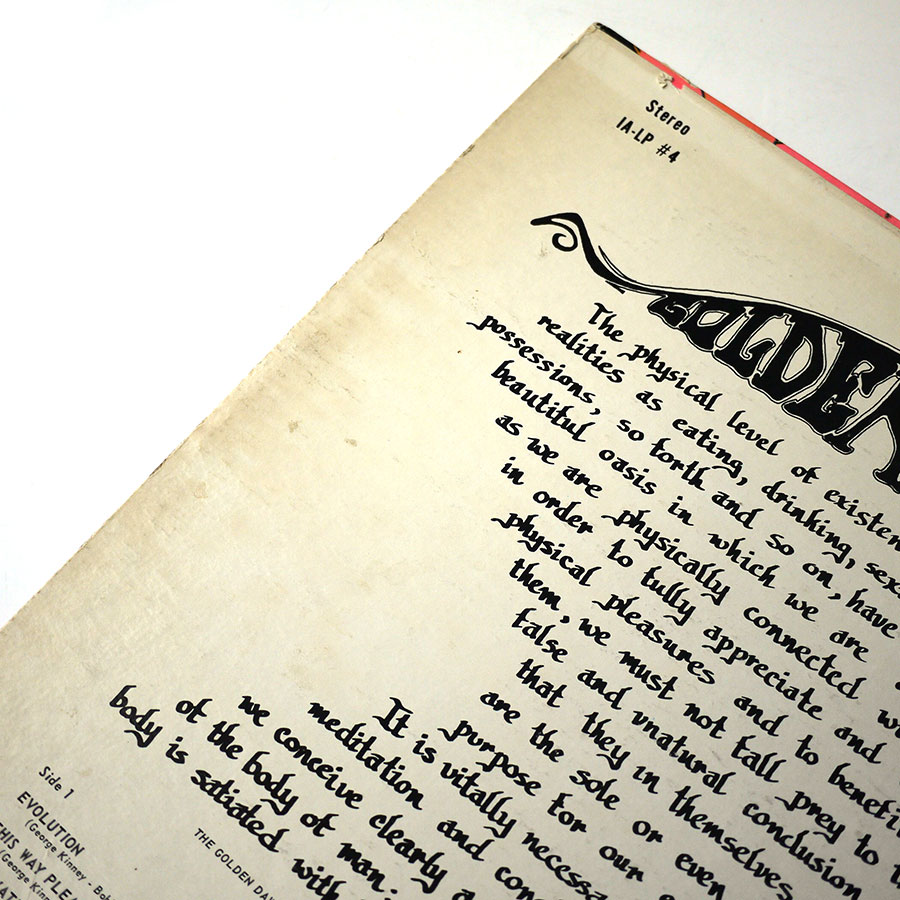 Stereo
IA-LP #4
GOLDEN
The physical level of
realities as eating, drinking,
possessions, so forth and so on, have
beautiful oasis in which we are
as we are physically connected
in order to fully appreciate and
physical pleasures and to
them, we must not fall prey to
false and unnatural conclusion
that they in themselves
are the sole or even
purpose for our
It is vitally
meditation and
we conceive clearly
of the body of man.
body is satiated with
THE GOLDEN
Side 1
EVOLUTION
(George Kinney -
THIS WAY
(George